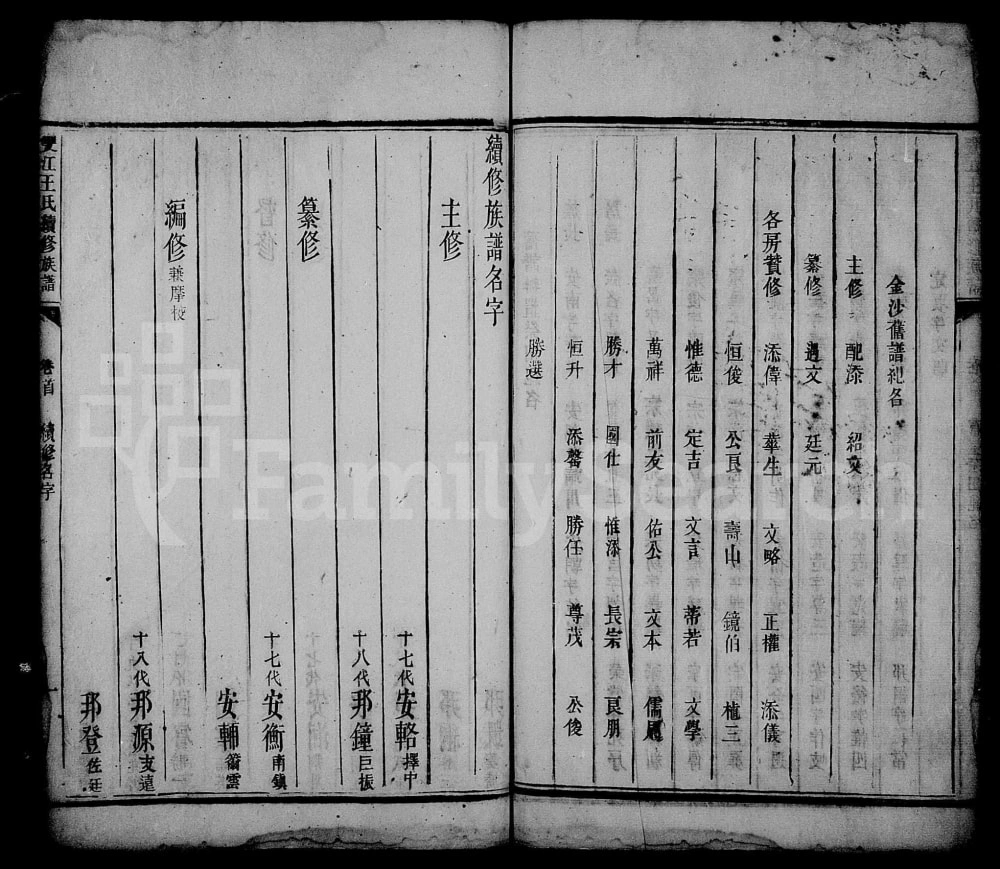 金沙舊譜紀名
主修 配添 紹文
纂修 遇文 廷元
各房贊修 添偉 華生 文略 正權 添儀
恒俊 公良 壽山 鏡伯 植三
惟德 定吉 文言 蒂若 文學
萬祥 前友 佑公 文本 儒
勝才 國仕 惟添 長宗 良朋
恒升 添馨 勝任 尊茂 公俊
勝選
續修族譜名字
主修
十七代安輅擇中
十八代邦鐘巨振
纂修
十七代安衡南鎮
安輔籥雲
編修兼摩校
十八代邦源支遠
邦登佐廷
雙江王氏續修族譜 卷首 續修名字 一
FamilySearch